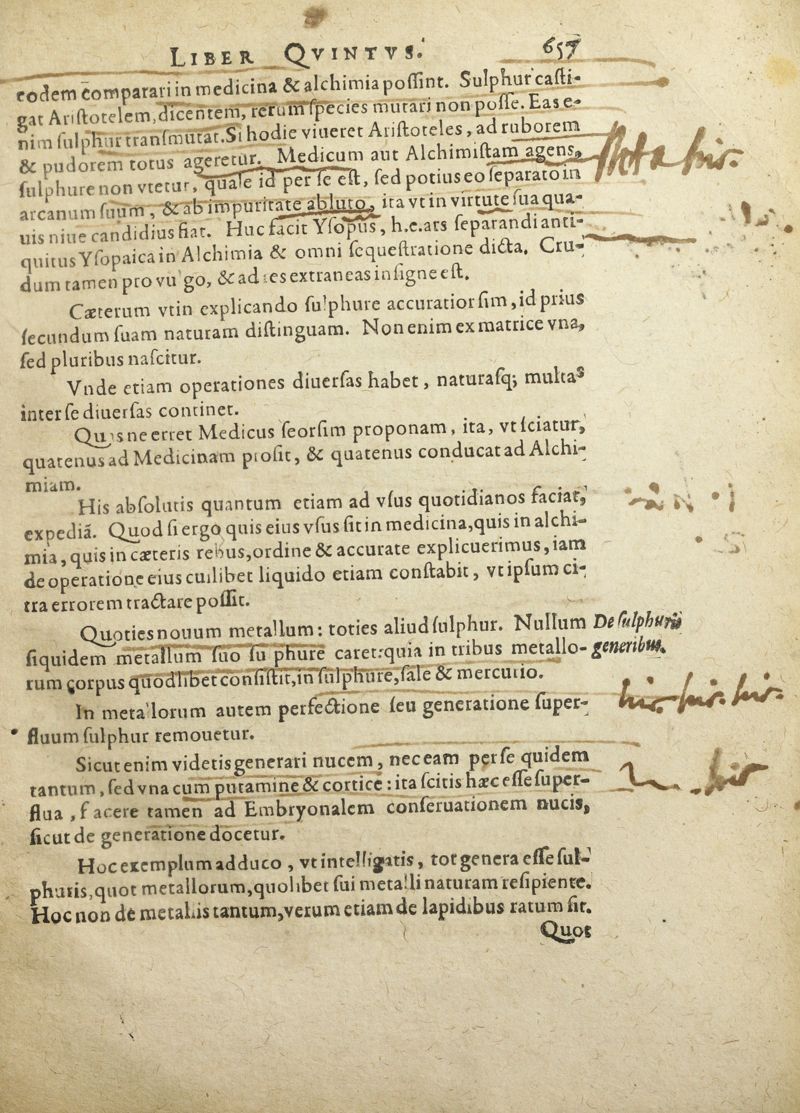 LIBER QVINTVS. 657
eodem comparari in medicina & alchimia poſſint. Sulphur caſti-
gat Ariſtotelem, dicentem, rerum ſpecies mutari non poſſe. Eas e-
nim ſulphur tranſmutat. Si hodie viueret Ariſtoteles, ad ruborem
& pudorem totus ageretur. Medicum aut Alchimiſtam agens,
ſulphure non vtetur, quale id per ſe eſt, ſed potius eo ſeparato in
arcanum ſuum, & ab impuritate abluto, ita vt in virtute ſua qua-
uis niue candidius fiat. Huc facit Yſopus, h.e. ars ſeparandi anti-
quitus Yſopaica in Alchimia & omni ſequeſtratione dicta. Cru-
dum tamen pro vulgo, & ad res extraneas inſigne eſt.
Cæterum vt in explicando ſulphure accuratior ſim, id prius
ſecundum ſuam naturam diſtinguam. Non enim ex matrice vna,
ſed pluribus naſcitur.
Vnde etiam operationes diuerſas habet, naturaſq; multas
inter ſe diuerſas continet.
Quis ne erret Medicus ſeorſim proponam, ita, vt ſciatur,
quatenus ad Medicinam proſit, & quatenus conducat ad Alchi-
miam.
His abſolutis quantum etiam ad vſus quotidianos faciat,
expediã. Quod ſi ergo quis eius vſus ſit in medicina, quis in alchi-
mia, quis in cæteris rebus, ordine & accurate explicuerimus, iam
de operatione eius cuilibet liquido etiam conſtabit, vt ipſum ci-
tra errorem tractare poſſit.
Quoties nouum metallum: toties aliud ſulphur. Nullum
De ſulphuris
ſiquidem metallum ſuo ſulphure caret: quia in tribus metallo-
generibus.
rum corpus quodlibet conſiſtit, in ſulphure, ſale & mercurio.
In metallorum autem perfectione ſeu generatione ſuper-
fluum ſulphur remouetur.
Sicut enim videtis generari nucem, nec eam per ſe quidem
tantum, ſed vna cum putamine & cortice: ita ſcitis hæc eſſe ſuper-
flua, facere tamen ad Embryonalem conſeruationem nucis,
ſicut de generatione docetur.
Hoc exemplum adduco, vt intelligatis, tot genera eſſe ſul-
phuris, quot metallorum, quolibet ſui metalli naturam reſipiente.
Hoc non de metallis tantum, verum etiam de lapidibus ratum ſit.
Quot